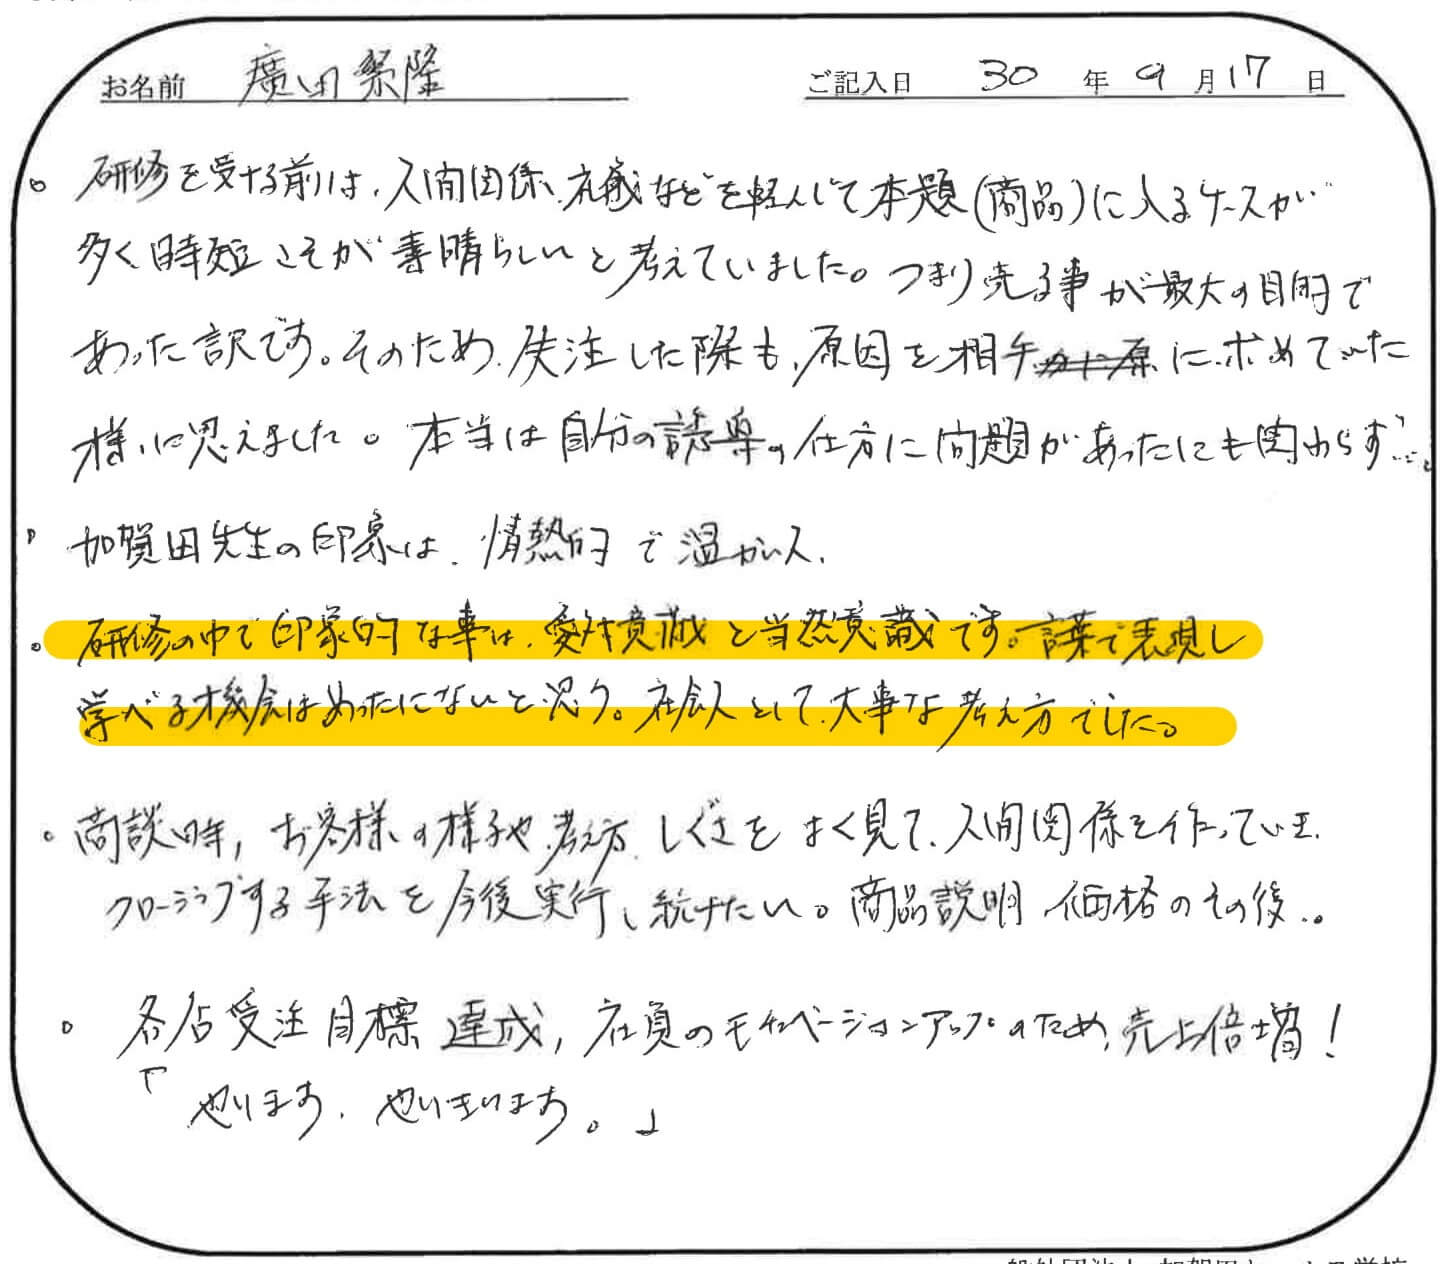 お名前 廣田繁隆 ご記入日 30 年 9 月 17 日
。研修を受ける前は、人間関係、礼儀などを軽んじて本題(商品)に入るケースが
多く時短こそが素晴らしいと考えていました。つまり売る事が最大の目的で
あった訳です。そのため、失注した際も、原因を相手に求めていた
様に思えました。本当は自分の誘導の仕方に問題があったにも関わらず…。
。加賀田先生の印象は、情熱的で温かい人、
。研修の中で印象的な事は、絶対意識と当然意識です。言葉で表現し
学べる機会はめったにないと思う。社会人として、大事な考え方でした。
。商談時、お客様の様子や、考え方、しぐさをよく見て、人間関係を作っていき、
クロージングする手法を今後実行し続けたい。商品説明、価格のその後..。
。各店受注目標達成、社員のモチベーションアップのため、売上倍増!
「やります、やりきります。」
一般社団法人 加賀田式セールス学校